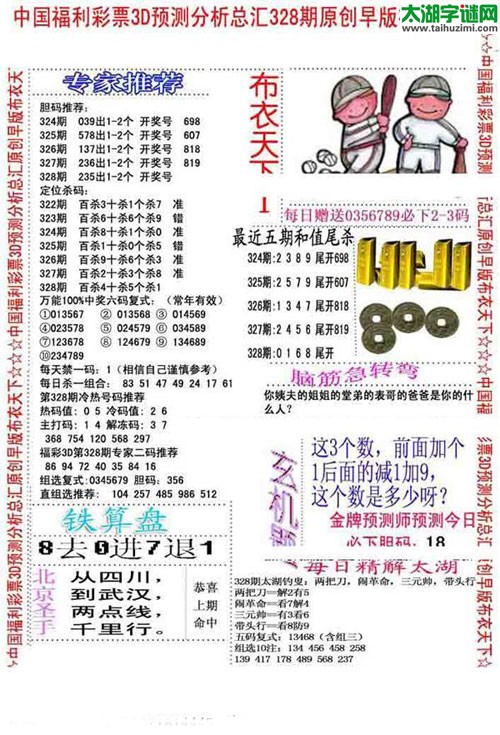 中国福利彩票3D预测分析总汇328期原创早版
太湖字谜网
www.taihuzimi.com
专家推荐
胆码推荐:
324期 039出1-2个 开奖号 698
325期 578出1-2个 开奖号 607
326期 137出1-2个 开奖号 818
327期 236出1-2个 开奖号 819
328期 235出1-2个 开奖号
定位杀码:
322期 百杀3十杀1个杀7 准
323期 百杀6十杀6个杀9 错
324期 百杀3十杀0个杀4 准
325期 百杀5十杀6个杀4 准
326期 百杀4十杀7个杀3 错
327期 百杀9十杀7个杀8 准
328期 百杀4十杀5个杀3
万能100%中奖六码复式: (常年有效)
①013567 ② 013568 ③ 014569
④023578 ⑤ 024579 ⑥ 034589
⑦123678 ⑧ 124679 ⑨ 134689
⑩234789
每天禁一码: 1(相信自己谨慎参考)
每日杀一组合: 83 51 47 49 24 17 61
第328期冷热号码推荐
热码值: 0 5 冷码值: 2 6
主打码: 1 4 解冻码: 3 7
368 754 120 568 297
福彩3D第328期专家二码推荐
86 94 72 40 35 84 16
组选复式:0345679 胆码: 356
直组选推荐: 104 257 485 986 512
铁算盘
8去0进7退1
北京圣于
从四川,
到武汉,
两点线,
千里行。
恭喜
上期
命中
布衣天下
1
每日赠送0356789必下2-3码
最近五期和值尾杀
324期:2 3 8 9 尾开698
325期:2 5 7 9 尾开607
326期:1 3 4 7 尾开818
327期:2 4 5 6 尾开819
328期:0 1 6 8 尾开
脑筋急转弯
你姨夫的姐姐的堂弟的表哥的爸爸是你的什
么人?
玄机
这3个数，前面加个
1后面的减1加9,
这个数是多少呀?
金牌预测师预测今日
必下胆码: 18
每日精解太湖
328期太湖钓叟: 两把刀, 闹革命, 三元帅, 带头行
两把刀==解2有5
闹革命==看7解4
三元帅==有3看6
带头行==看8防9
五码复式: 13468 (含组三)
组选10注: 134 456 458 258
139 417 178 489 568 237
☆中国福利彩票3D预测分析总汇原创早版布衣天下☆☆☆中国福利彩票3D预测分析总汇原创早版布衣天